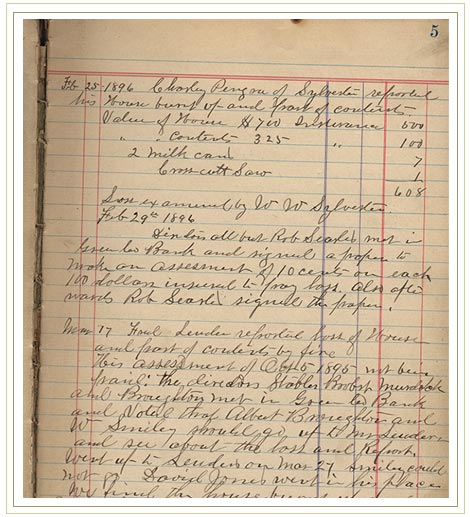 5
Feb 25 1896 Charley Pengra of Sylvester reported
his House burnt up and part of contents
Value of House $700 Insurance 500
" " Contents 325 " 100
2 milk cans 7
Crosscutt Saw 1
608
Loss examined by W W Sylvester.
Feb 29th 1896
Directors all but Rob Searles met in
Green Co Bank and signed a paper to
make an assessment of 10 cents on each
100 dollars insured to pay loss. Also after
wards Rob Searles signed the paper.
Mar 17 Fred Lender reported loss of House
and part of contents by fire
His assessment of Oct 5 1895 not been
paid. the directors Stabler Probst Murdock
and Broughton met in Green Co Bank
and Voted that Albert Broughton and
W Smiley should go up to Mr Lenders
and see about the loss and Report.
Went up to Lenders on Mar 27 Smiley could
not go David Jones went in his place
We find the house